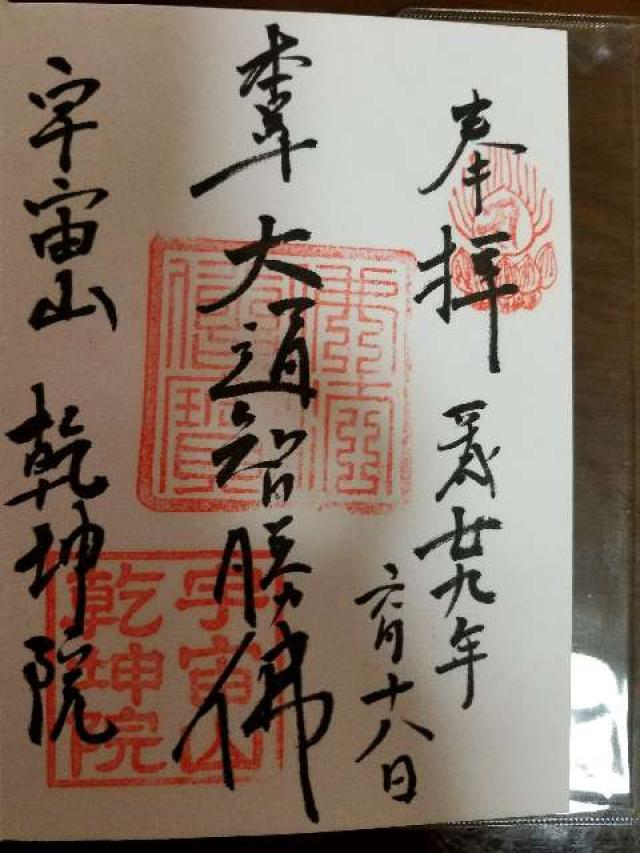 奉拝
平成廿九年
六月十八日
本尊
大通智勝佛
宇宙山 乾坤院
宇宙山
乾坤院